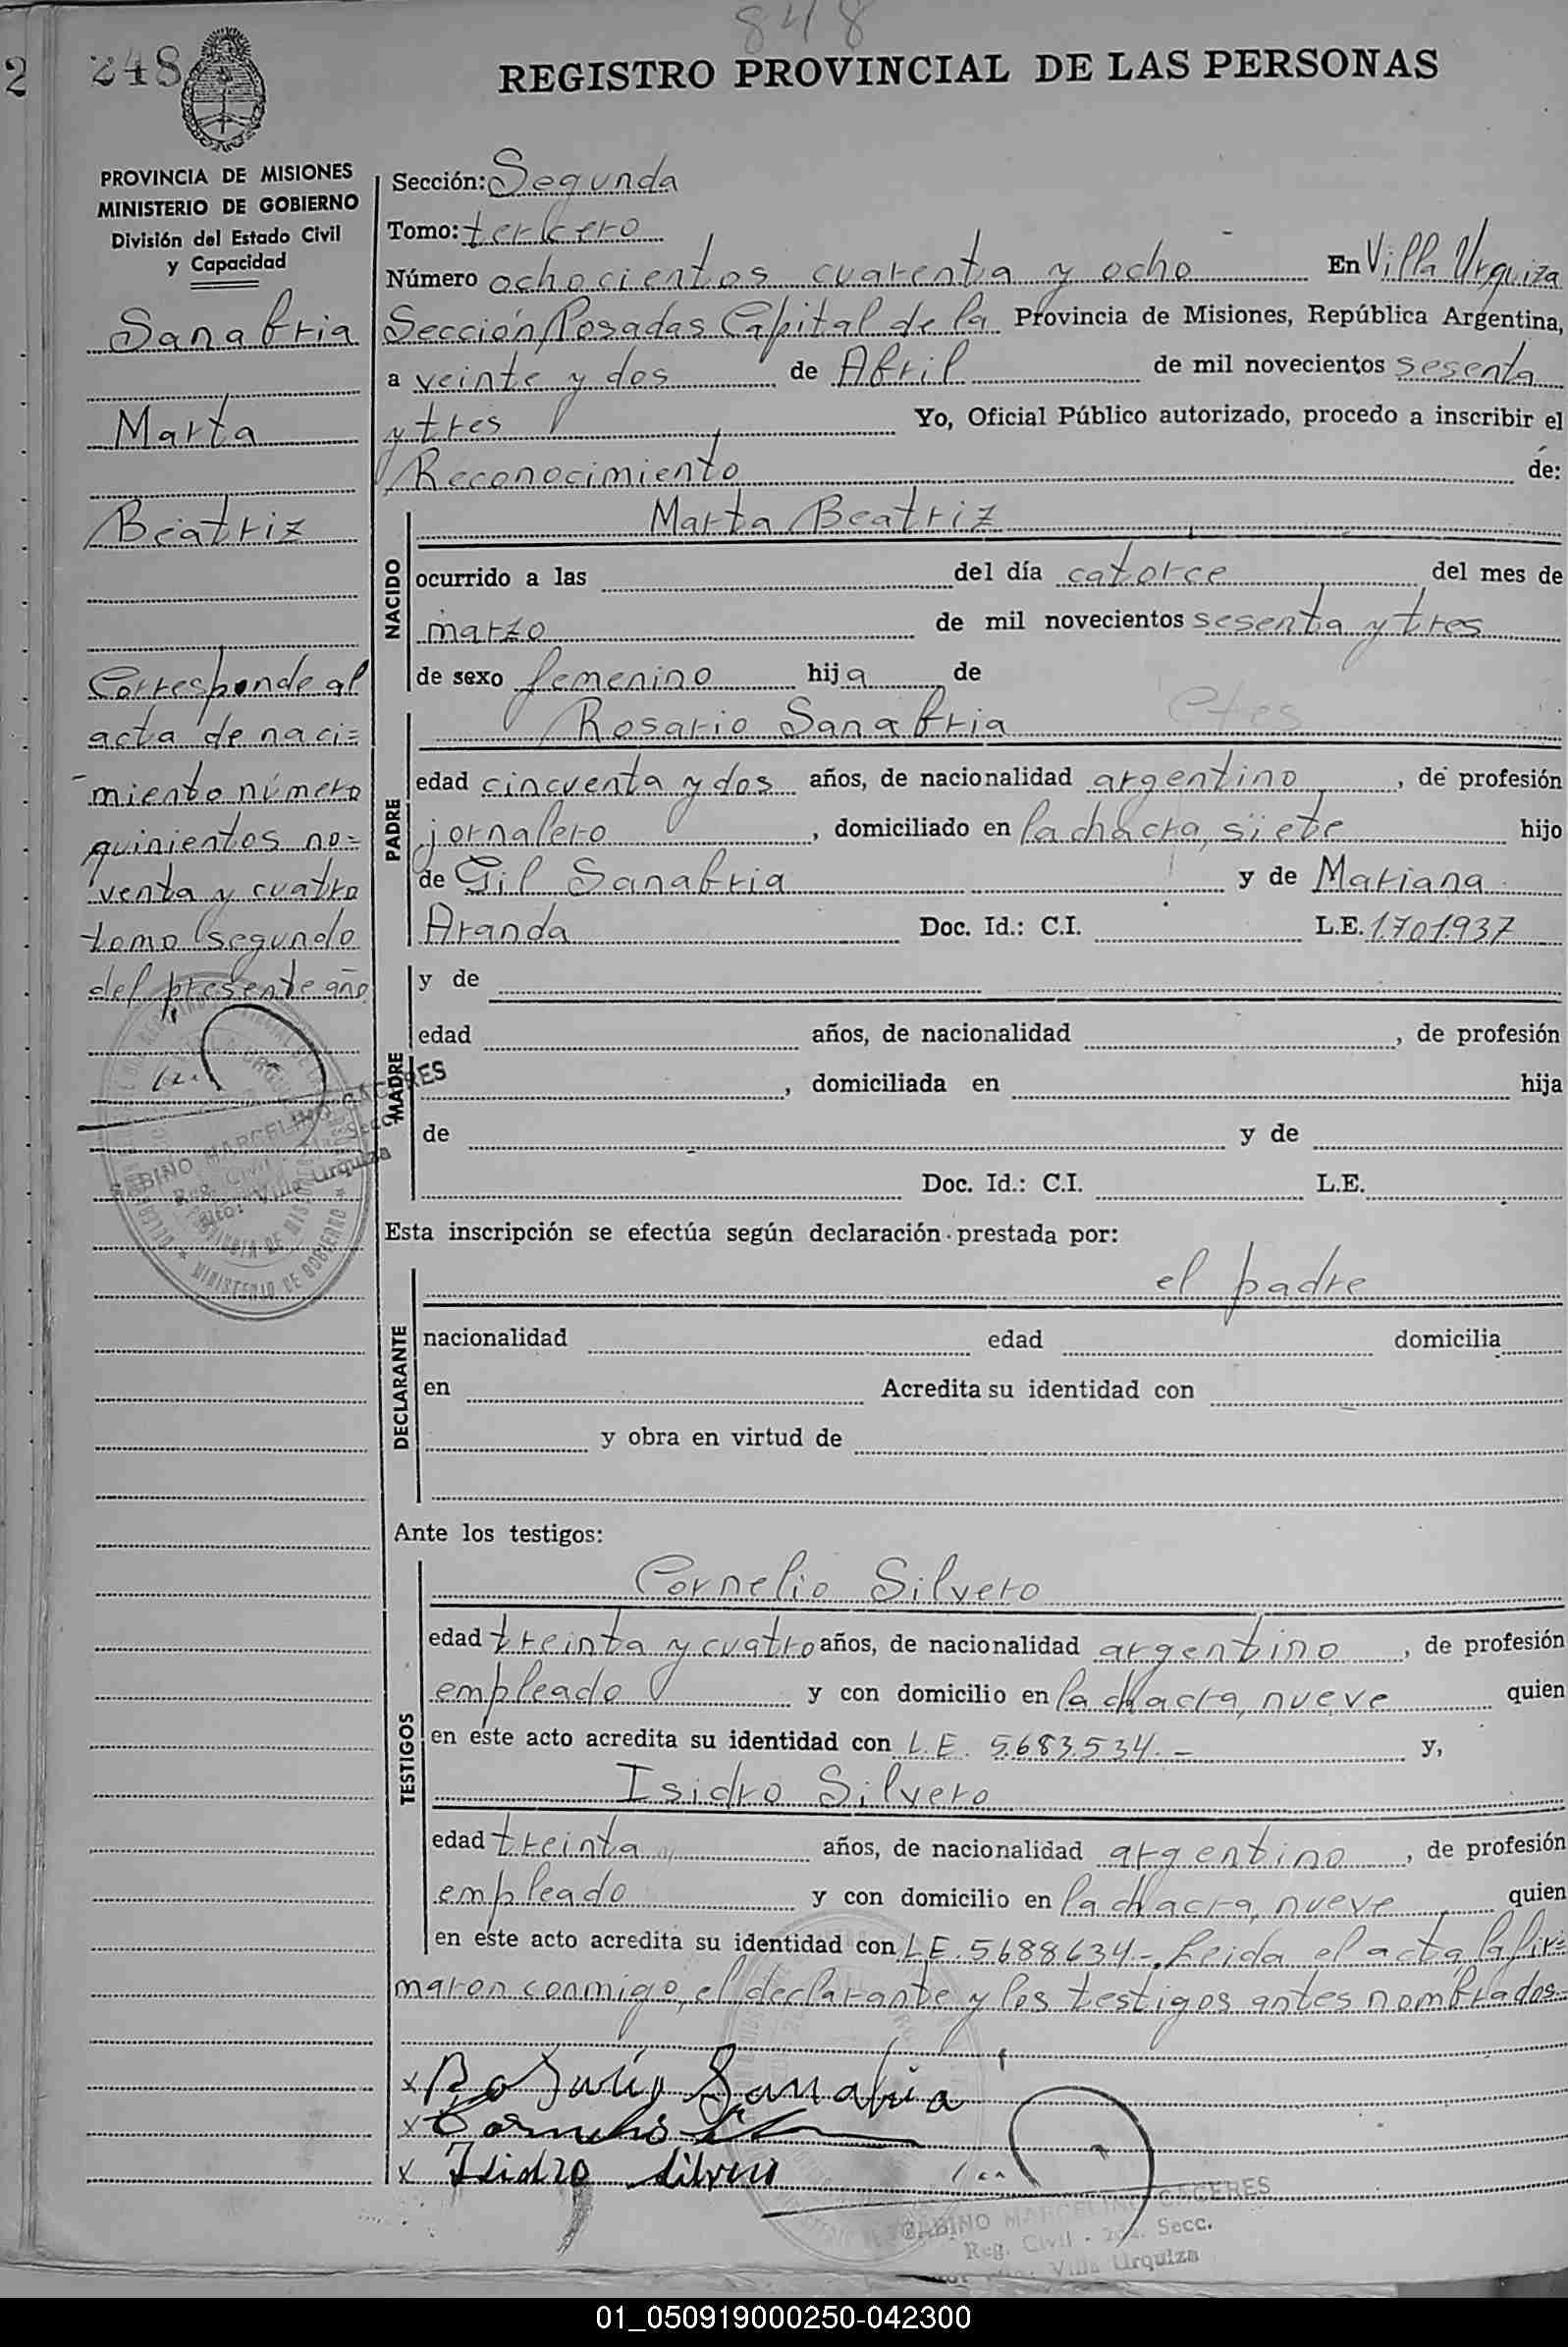 848
2
248
REGISTRO PROVINCIAL DE LAS PERSONAS
PROVINCIA DE MISIONES
MINISTERIO DE GOBIERNO
División del Estado Civil
y Capacidad
Sanabria
Marta
Beatriz
Corresponde al
acta de naci=
miento número
quinientos no=
venta y cuatro
tomo segundo
del presente año
GABINO MARCELINO CACERES
Reg. Civil
Villa Urquiza
MINISTERIO DE GOBIERNO
Sección: Segunda
Tomo: tercero
Número ochocientos cuarenta y ocho En Villa Urquiza
Sección, Posadas Capital de la Provincia de Misiones, República Argentina,
a veinte y dos de Abril de mil novecientos sesenta
y tres Yo, Oficial Público autorizado, procedo a inscribir el
Reconocimiento de:
NACIDO
Marta Beatriz
ocurrido a las del día catorce del mes de
marzo de mil novecientos sesenta y tres
de sexo femenino hija de
PADRE
Rosario Sanabria
edad cincuenta y dos años, de nacionalidad argentino, de profesión
jornalero, domiciliado en la chacra, siete hijo
de Gil Sanabria y de Mariana
Aranda Doc. Id.: C.I. L.E. 1.701.937
MADRE
y de
edad años, de nacionalidad , de profesión
, domiciliada en hija
de y de
Doc. Id.: C.I. L.E.
Esta inscripción se efectúa según declaración prestada por:
DECLARANTE
el padre
nacionalidad edad domicilia
en Acredita su identidad con
y obra en virtud de
Ante los testigos:
TESTIGOS
Cornelio Silvero
edad treinta y cuatro años, de nacionalidad argentino, de profesión
empleado y con domicilio en la chacra, nueve quien
en este acto acredita su identidad con L.E. 5.683.534.- y,
Isidro Silvero
edad treinta años, de nacionalidad argentino, de profesión
empleado y con domicilio en la chacra, nueve quien
en este acto acredita su identidad con L.E. 5688634-. Leida el acta, la fir=
maron conmigo, el declarante y los testigos antes nombrados.-
x Rosario Sanabria
x Cornelio
x Isidro Silvero
GABINO MARCELINO CACERES
Reg. Civil - 2da. Secc.
Villa Urquiza
01_050919000250-042300